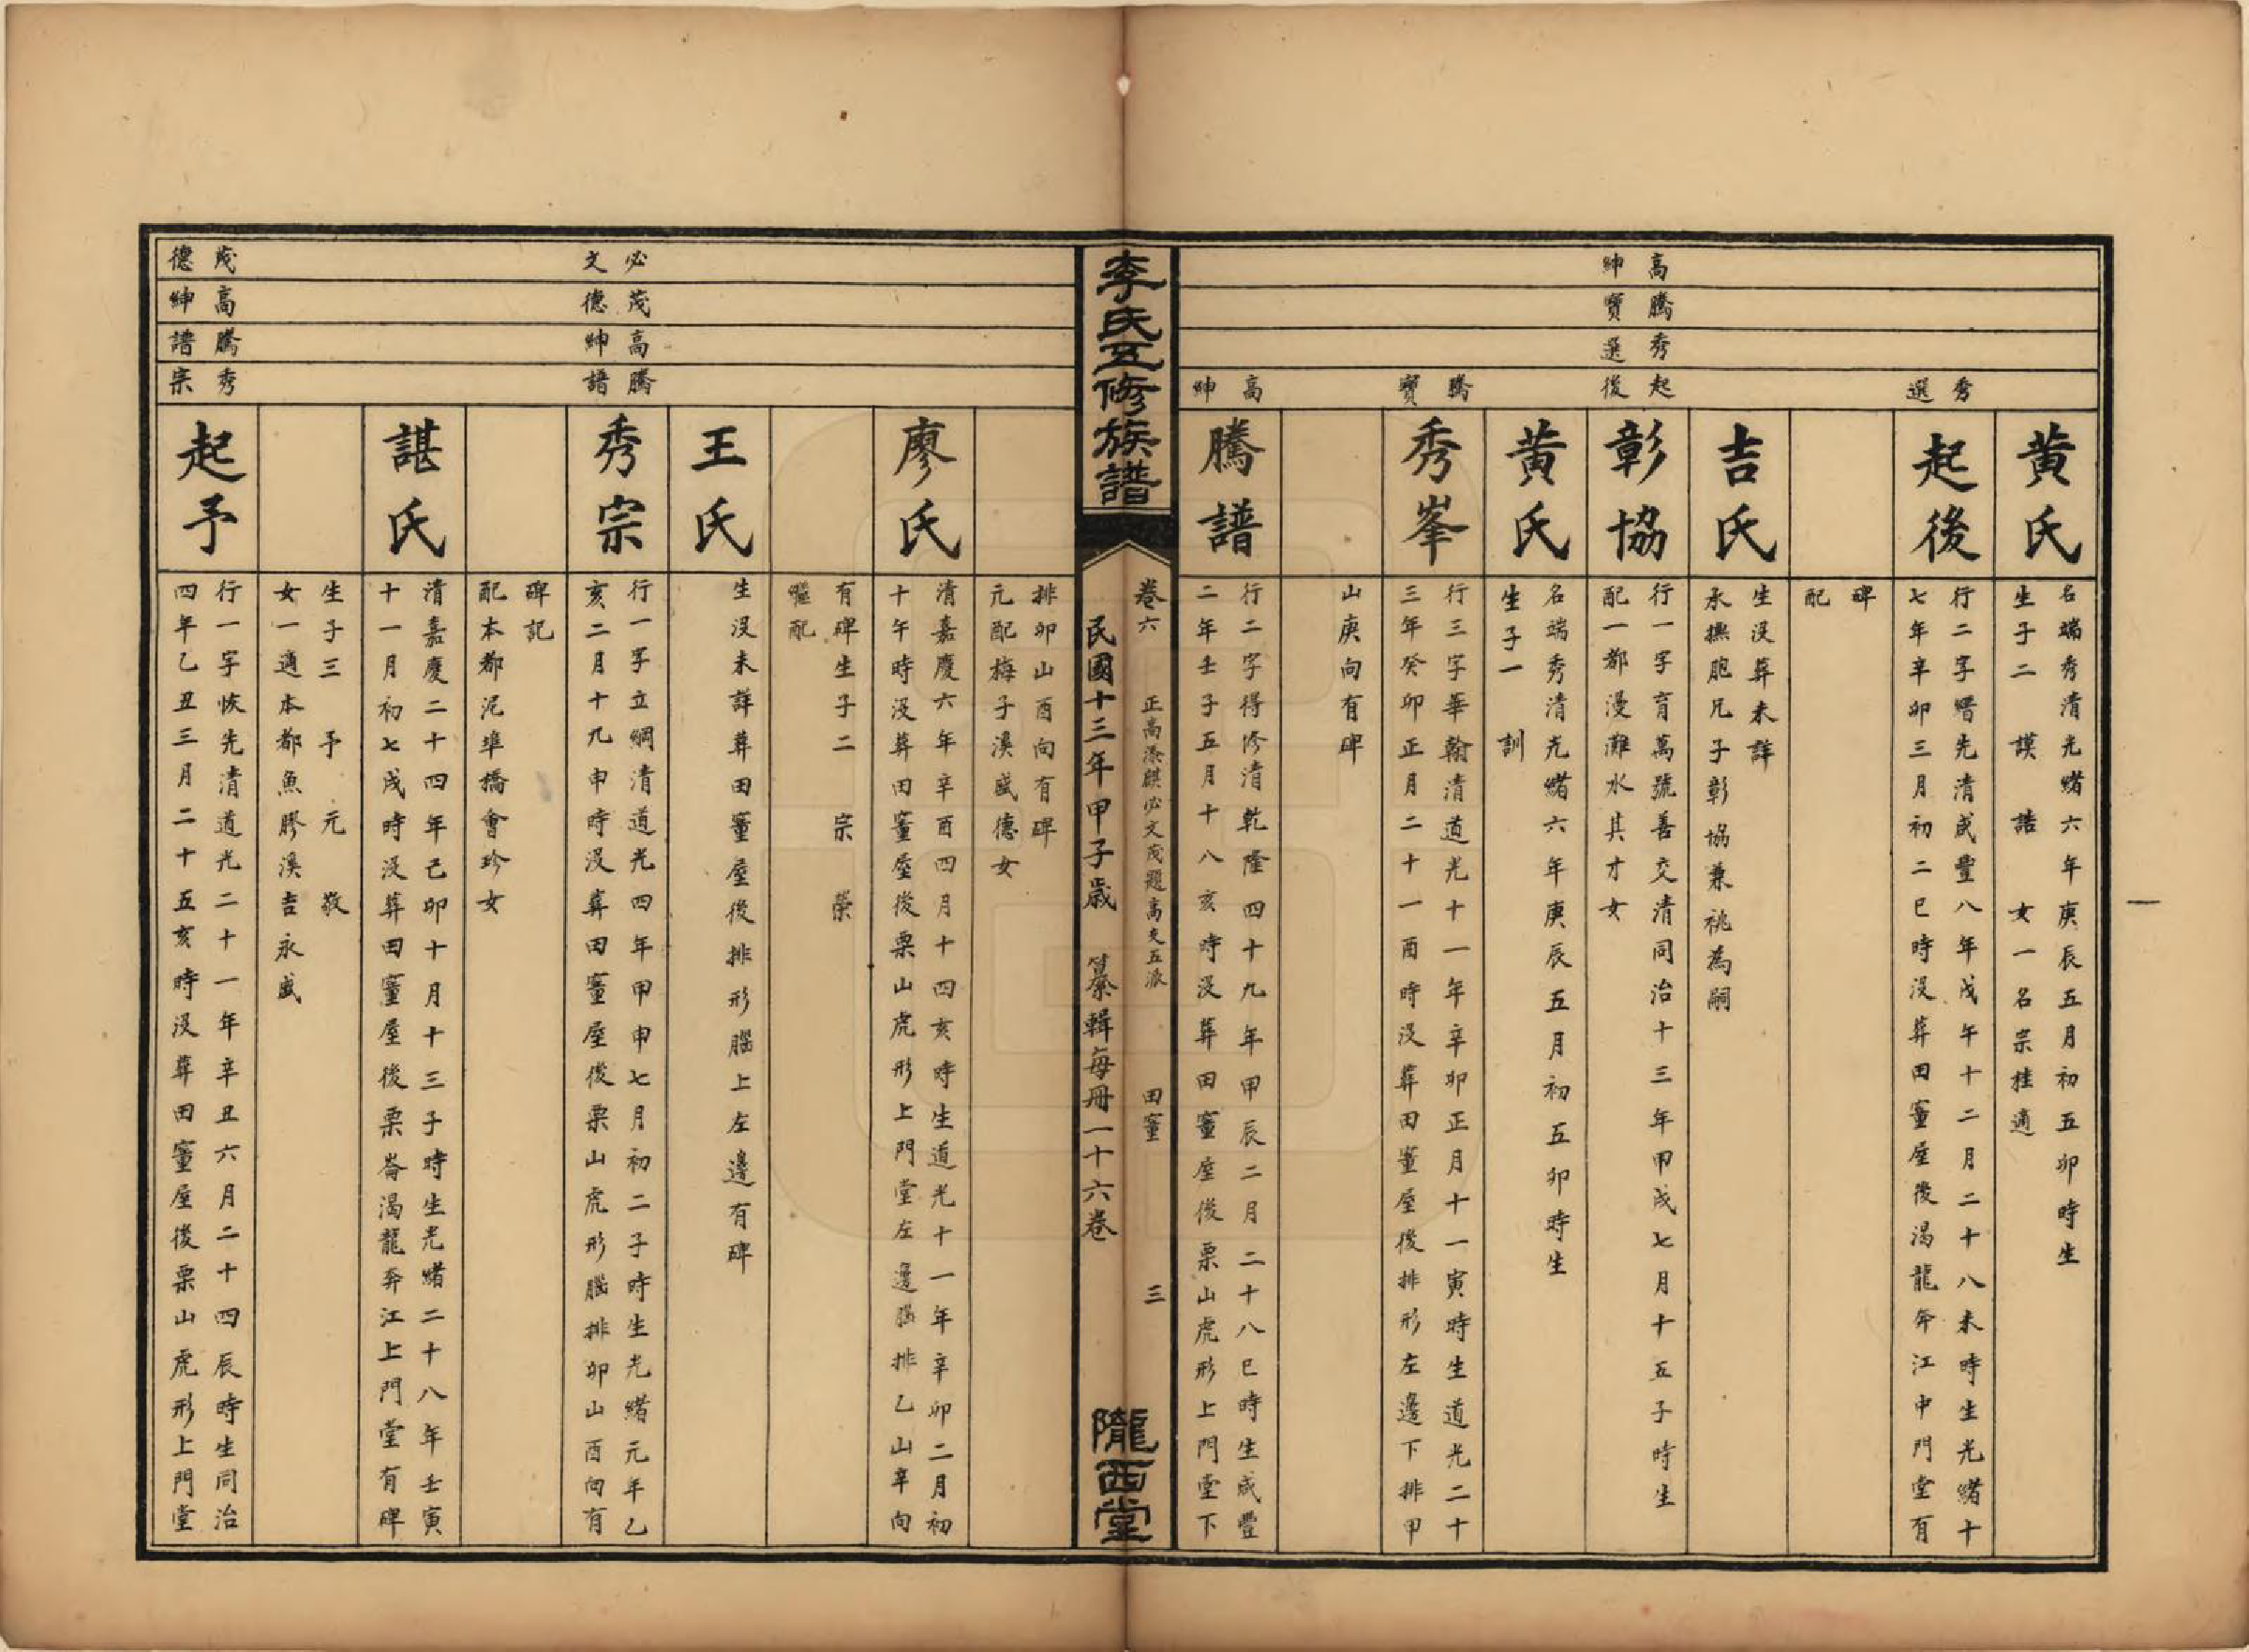 秀選
黄氏
名端秀清光緒六年庚辰五月初五卯時生
生子二 謨 誥 女一名宗桂適
起後
行二字㬜先清咸豐八年戊午十二月二十八未時生光緒十
七年辛卯三月初二巳時沒葬田𡫏屋後渴龍奔江中門堂有
碑
配
吉氏
生沒葬未詳
承撫胞兄子彰協兼祧為嗣
高紳
騰寶
秀選
起後
彰協
行一字育萬號善交清同治十三年甲戌七月十五子時生
配一都漫灘水其才女
黄氏
名端秀清光緒六年庚辰五月初五卯時生
生子一 訓
騰寶
秀峯
行三字華翰清道光十一年辛卯正月十一寅時生道光二十
三年癸卯正月二十一酉時沒葬田𡫏屋後排形左邊下排甲
山庚向有碑
高紳
騰譜
行二字得修清乾隆四十九年甲辰二月二十八巳時生咸豐
二年壬子五月十八亥時沒葬田𡫏屋後栗山虎形上門堂下
李氏五修族譜
卷六 正高添麒必文茂題高文五派 田𡫏 三
民國十三年甲子歲 纂輯每冊一十六卷
隴西堂
排卯山酉向有碑
元配梅子溪盛德女
廖氏
清嘉慶六年辛酉四月十四亥時生道光十一年辛卯二月初
十午時沒葬田𡫏屋後栗山虎形上門堂左邊腦排乙山辛向
有碑生子二 宗 榮
繼配
王氏
生沒未詳葬田𡫏屋後排形腦上左邊有碑
必文
茂德
高紳
騰譜
秀宗
行一字立綱清道光四年甲申七月初二子時生光緒元年乙
亥二月十九申時沒葬田𡫏屋後栗山虎形腦排卯山酉向有
碑記
配本都泥準橋會珍女
諶氏
清嘉慶二十四年己卯十月十三子時生光緒二十八年壬寅
十一月初七戌時沒葬田𡫏屋後栗崙渴龍奔江上門堂有碑
生子三 予 元 敬
女一適本都魚膠溪吉永盛
茂德
高紳
騰譜
秀宗
起予
行一字恢先清道光二十一年辛丑六月二十四辰時生同治
四年乙丑三月二十五亥時沒葬田𡫏屋後栗山虎形上門堂